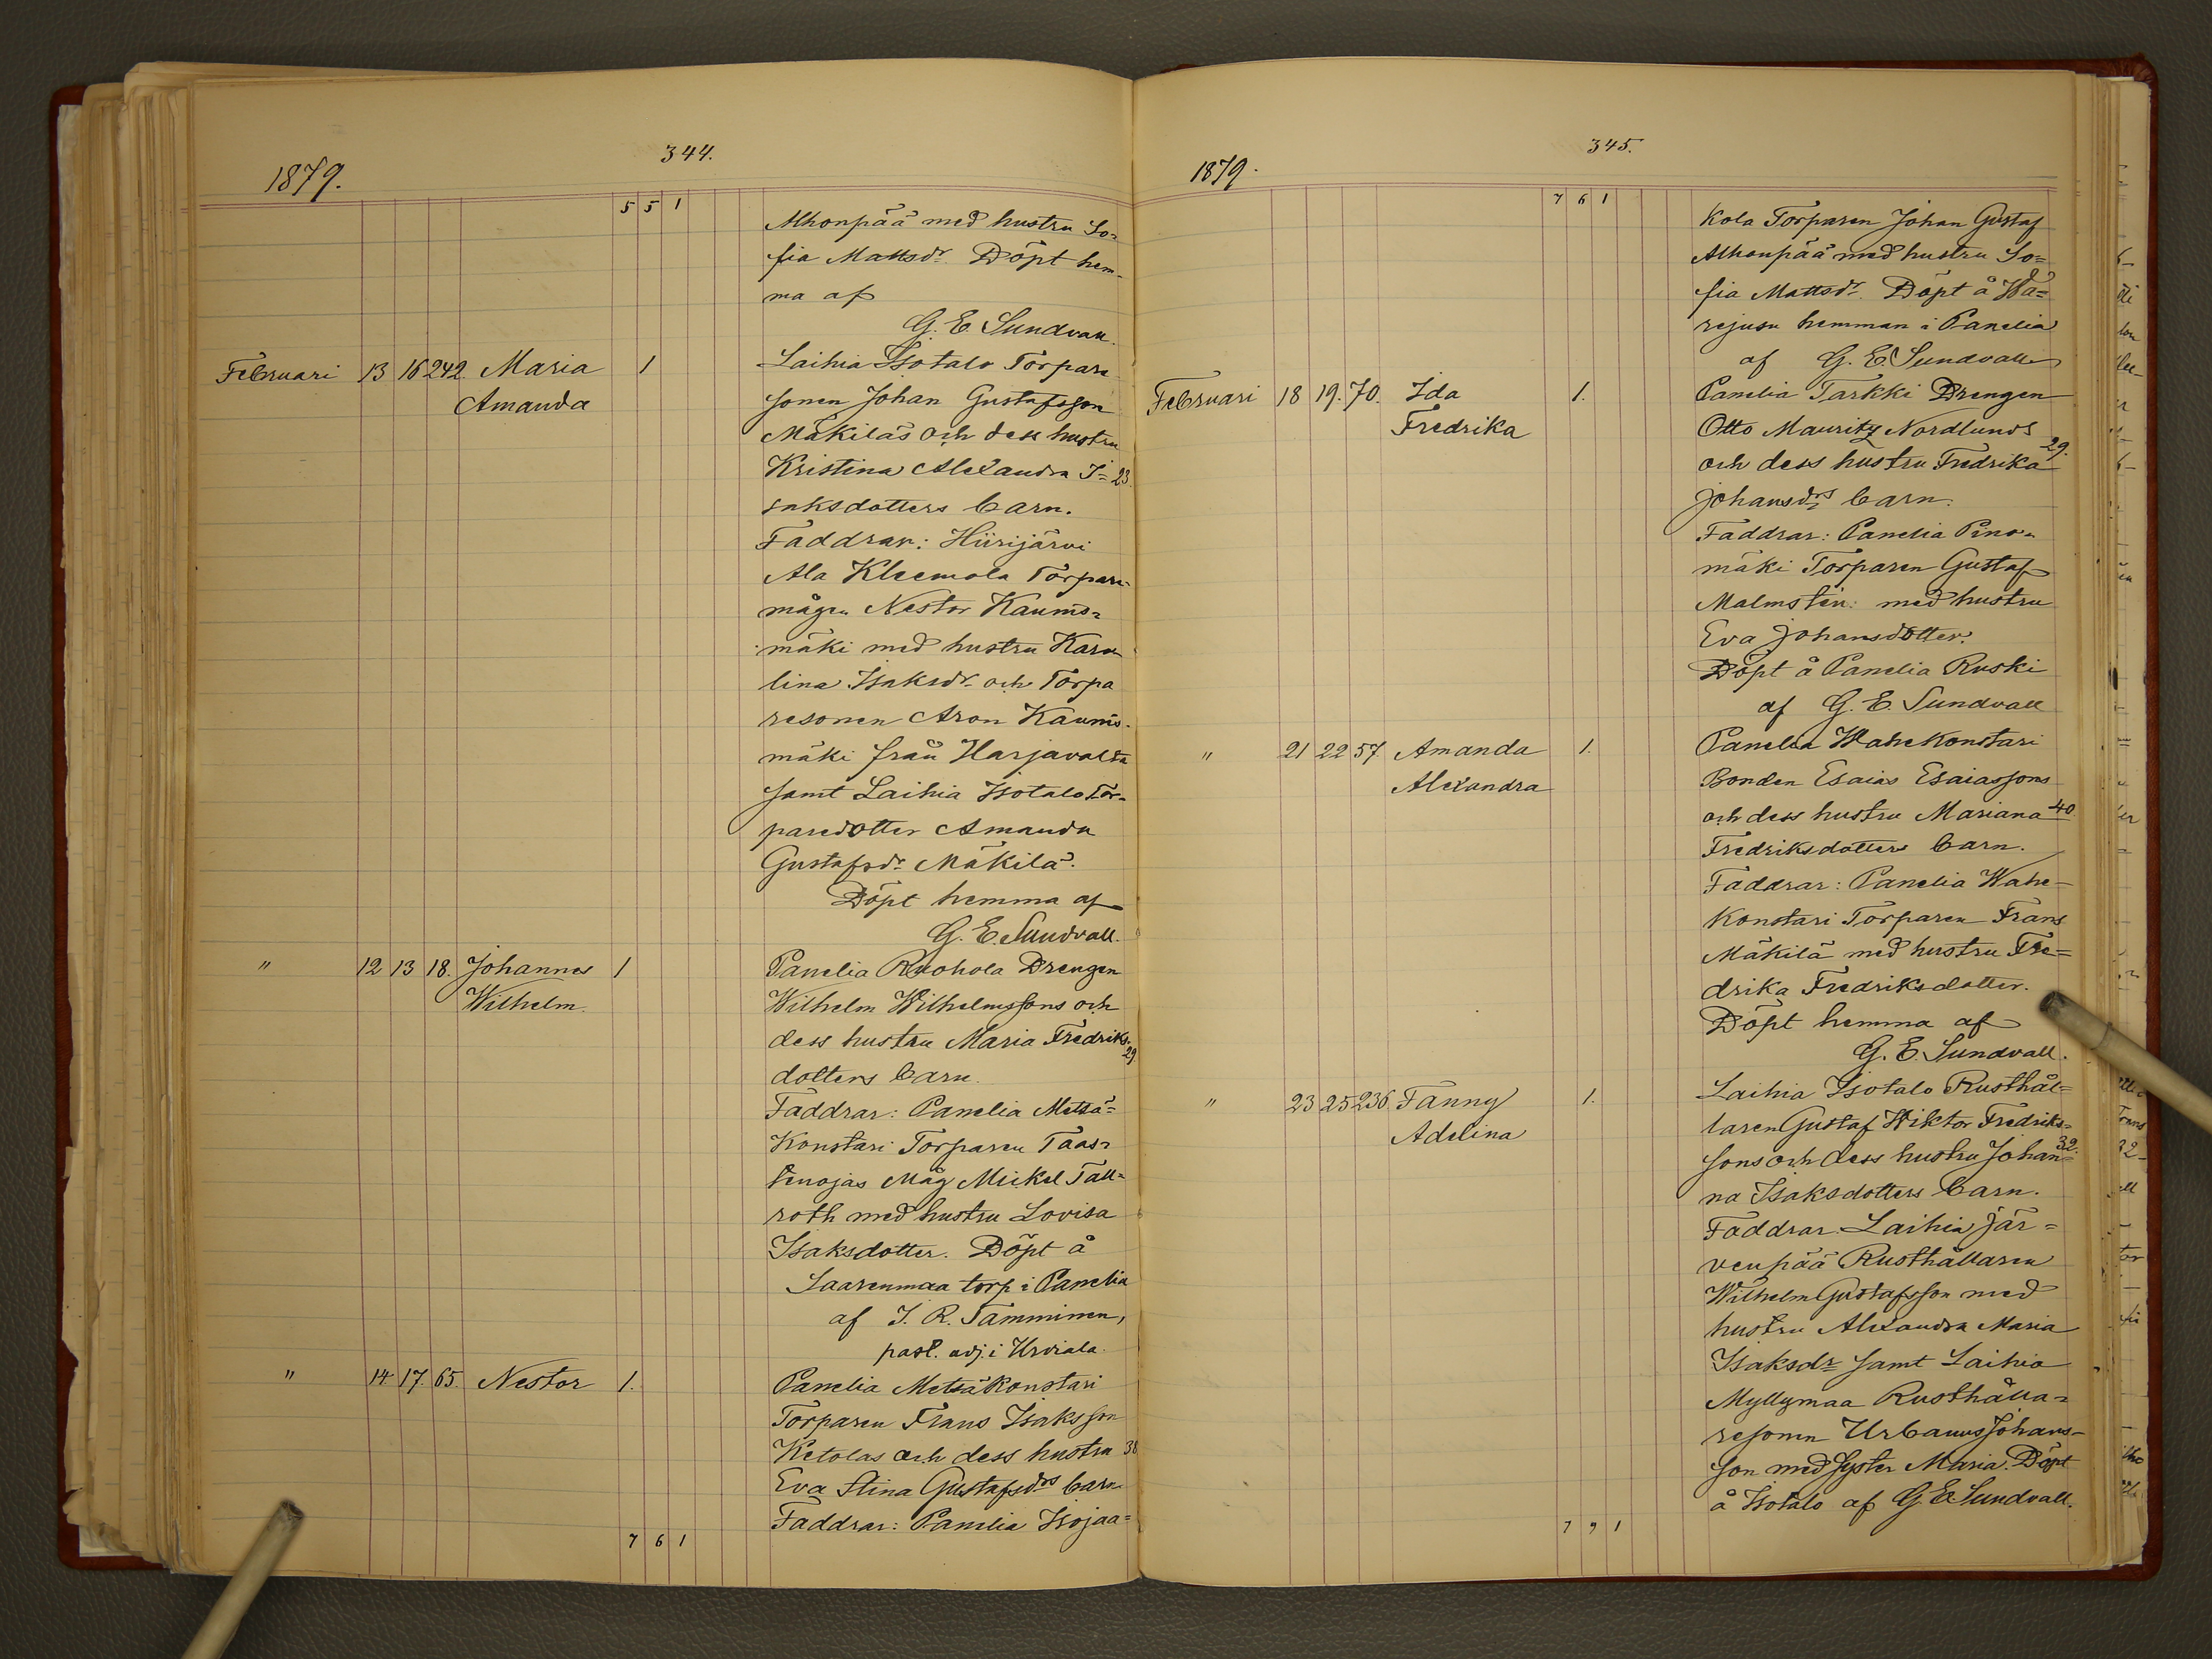 344.
1879.
5 5 1
Alhonpää med hustru So-
fia Mattsdr. Döpt hem-
ma af
G. E. Sundvall.
Februari 13 16 242. Maria 1 Laihia Isotalo Torpare
Amanda sonen Johan Gustafsson
Mäkiläs och dess hustru
Kristina Alexandra I- 23.
saksdotters barn.
Faddrar: Hiirijärvi
Ala Kleemola Torpare-
mågen Nestor Kaunis-
mäki med hustru Karo-
lina Isaksdr. och Torpa
resonen Aron Kaunis-
mäki från Harjavalta
samt Laihia Isotalo Tor-
paredotter Amanda
Gustafsdr. Mäkilä.
Döpt hemma af
G. E. Sundvall.
" 12 13 18. Johannes 1 Panelia Ruohola Drengen
Wilhelm. Wilhelm Wilhelmssons och
dess hustru Maria Fredriks- 29.
dotters barn.
Faddrar: Panelia Metsä-
Konstari Torparen Taas-
tenojas Måg Mickel Tall-
roth med hustru Lovisa
Isaksdotter. Döpt å
Saarenmaa torp i Panelia
af J. R. Tamminen,
past. adj. i Urdiala.
" 14. 17. 65. Nestor 1. Panelia Metsäkonstari
Torparen Frans Isaksson
Ketolas och dess hustru 38
Eva Stina Gustafsdrs barn
Faddrar: Panelia Isojaa-
7 6 1
345.
1879.
7 6 1
Kola Torparen Johan Gustaf
Alhonpää med hustru So-
fia Mattsdr. Döpt å Wä-
rejusu hemman i Panelia
af G. E. Sundvall
Februari 18 19. 70. Ida 1. Panelia Tarkki Drengen
Fredrika Otto Mauritz Nordlunds
och dess hustru Fredrika 29.
Johansdrs barn.
Faddrar: Panelia Pino-
mäki Torparen Gustaf
Malmstén: med hustru
Eva Johansdotter.
Döpt å Panelia Ruski
af G. E. Sundvall
" 21 22 57. Amanda 1. Panelia Wahekonstari
Alexandra Bonden Esaias Esaiassons
och dess hustru Mariana 40.
Fredriksdotters barn.
Faddrar: Panelia Wahe-
Konstari Torparen Frans
Mäkilä med hustru Fre-
drika Fredriksdotter.
Döpt hemma af
G. E. Sundvall.
" 23 25 236. Fanny 1. Laihia Isotalo Rusthål-
Adelina laren Gustaf Wiktor Fredriks-
sons och dess hustru Johan- 32.
na Isaksdotters barn.
Faddrar. Laihia Jär-
venpää Rusthållaren
Wilhelm Gustafsson med
hustru Alexandra Maria
Isaksdr samt Laihia
Myllymaa Rusthålla-
resonen Urbanus Johans-
son med syster Maria. Döpt
å Isotalo af G. E. Sundvall.
7 9 1